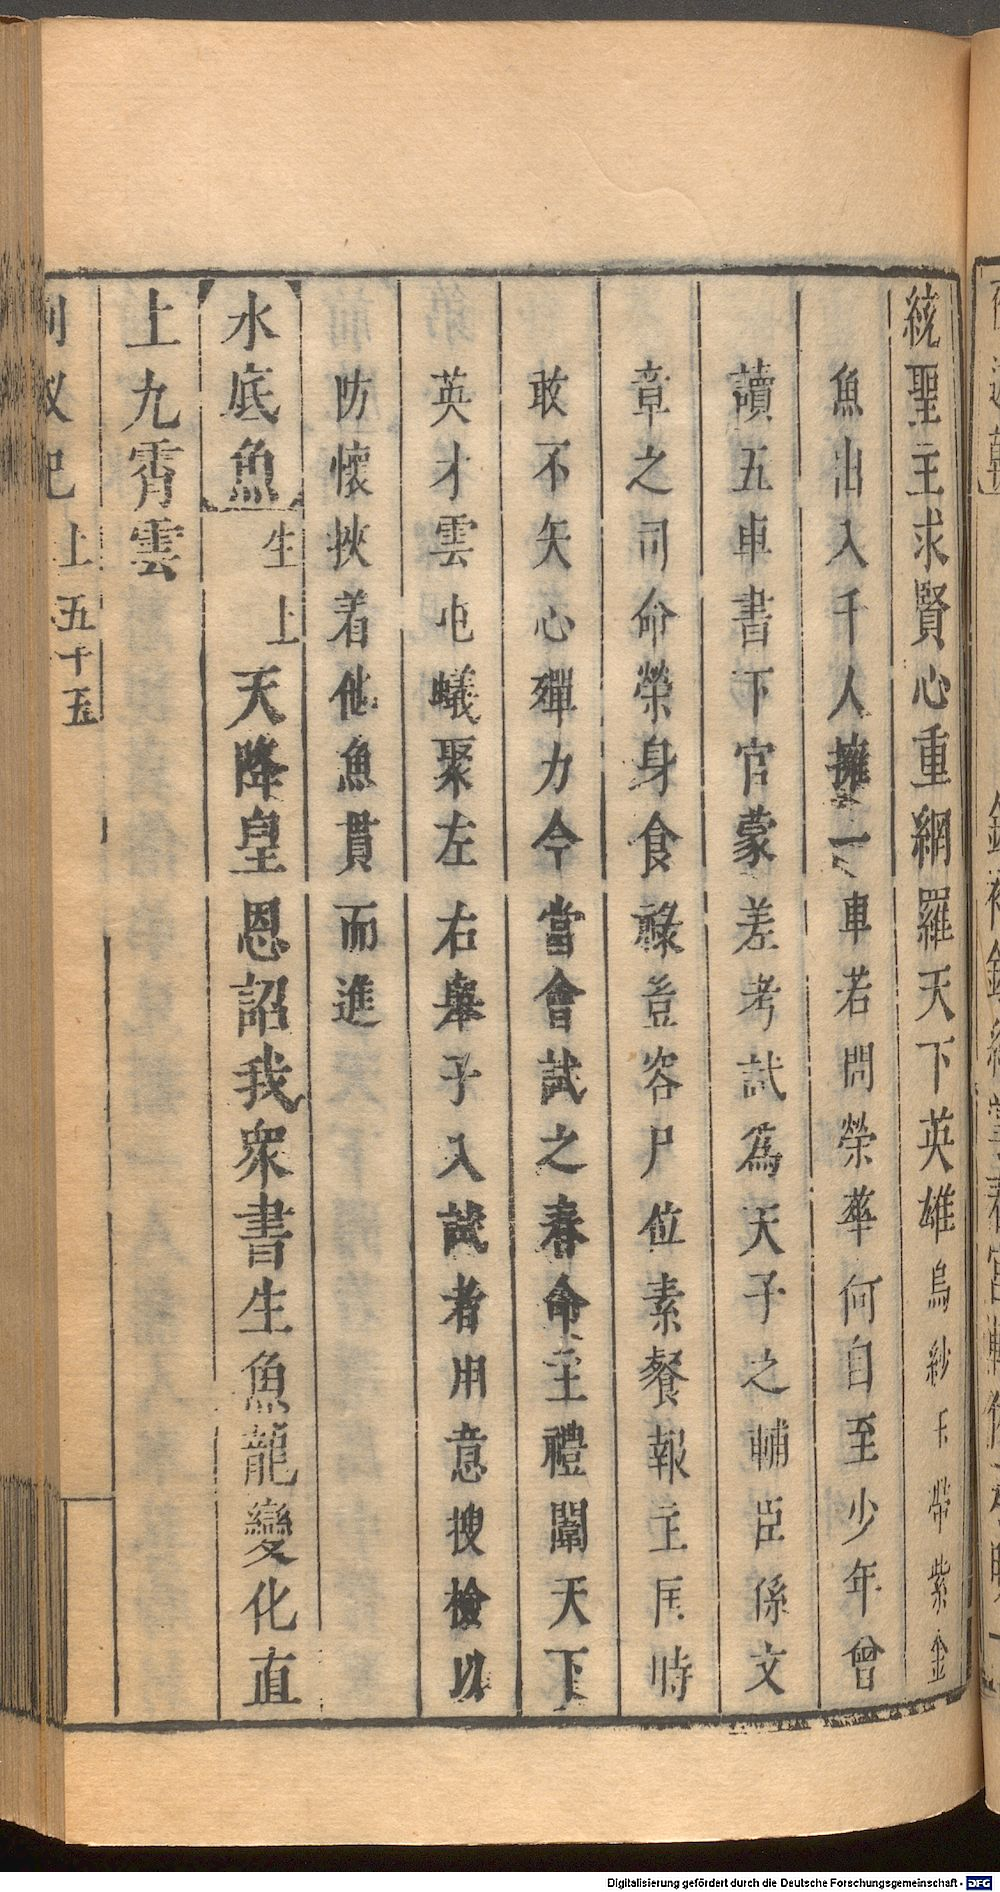 統聖主求賢心重網羅天下英雄烏紗玉帶紫金
魚出入千人擁一車若問榮華何自至少年曾
讀五車書下官蒙差考試爲天子之輔臣係文
章之司命榮身食祿豈容尸位素餐報主匡時
敢不矢心殫力今當會試之春命主禮闈天下
英才雲屯蟻聚左右舉子入試者用意搜檢以
防懷挾着他魚貫而進
水底魚 生上 天降皇恩詔我衆書生魚龍變化直
上九霄雲
上五十五
Digitalisierung gefördert durch die Deutsche Forschungsgemeinschaft - DFG